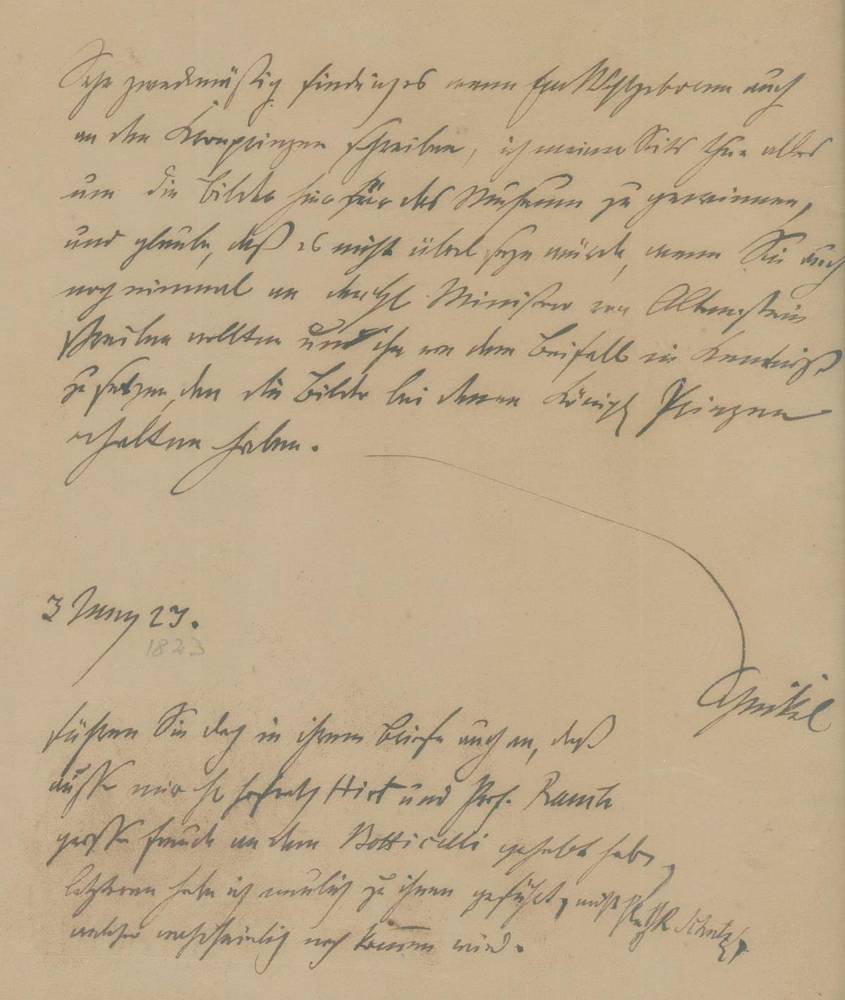 Sehr zweckmäßig finde ich es wenn Ew Wohlgeboren auch
an den Kronprinzen schreiben, ich meiner Seits thue alles
um die Bilder hier für das Museum zu gewinnen,
und glaube, daß es nicht übel seyn würde, wenn Sie auch
noch einmal an den H Minister von Altenstein
schreiben wollten und ihn von dem Beifall in Kentniß
zu setzen, den die Bilder bei denen Königl Prinzen
erhalten haben.
3 Juny 23.
1823
Schinkel
führen Sie doch in ihrem Briefe auch an, daß
außer mir H Hofrath Hirt und Prof. Rauch
große Freude an dem Botticelli gehabt haben,
letzteren habe ich neulich zu ihnen geführt, nicht
welcher wahrscheinlich noch kommen wird.